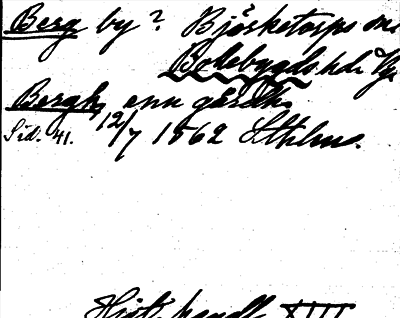 Berg by? Björketorps sn.
Bollebygds hd. Vg.
Bergh, enn gårdh.
Sid. 41. 12/7 1562 Sthlm.
Hist. handl. XIII